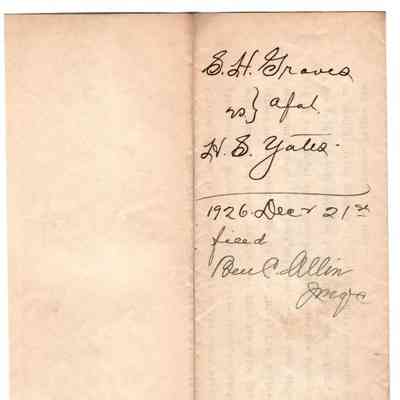 S. H. Groves
vs } Afdt.
H. S. Yates.
1926 Decr 21st
filed
Ben C. Allin